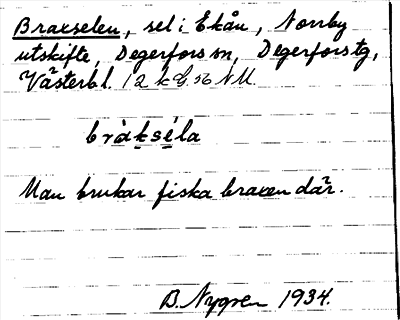 Braxselen, sel i Ekån, Norrby
utskifte, Degerfors sn, Degerfors tg,
Västerbl. 12 k G. 56 NM.
bràkséla
Man brukar fiska braxen där.
B. Nygren 1934.